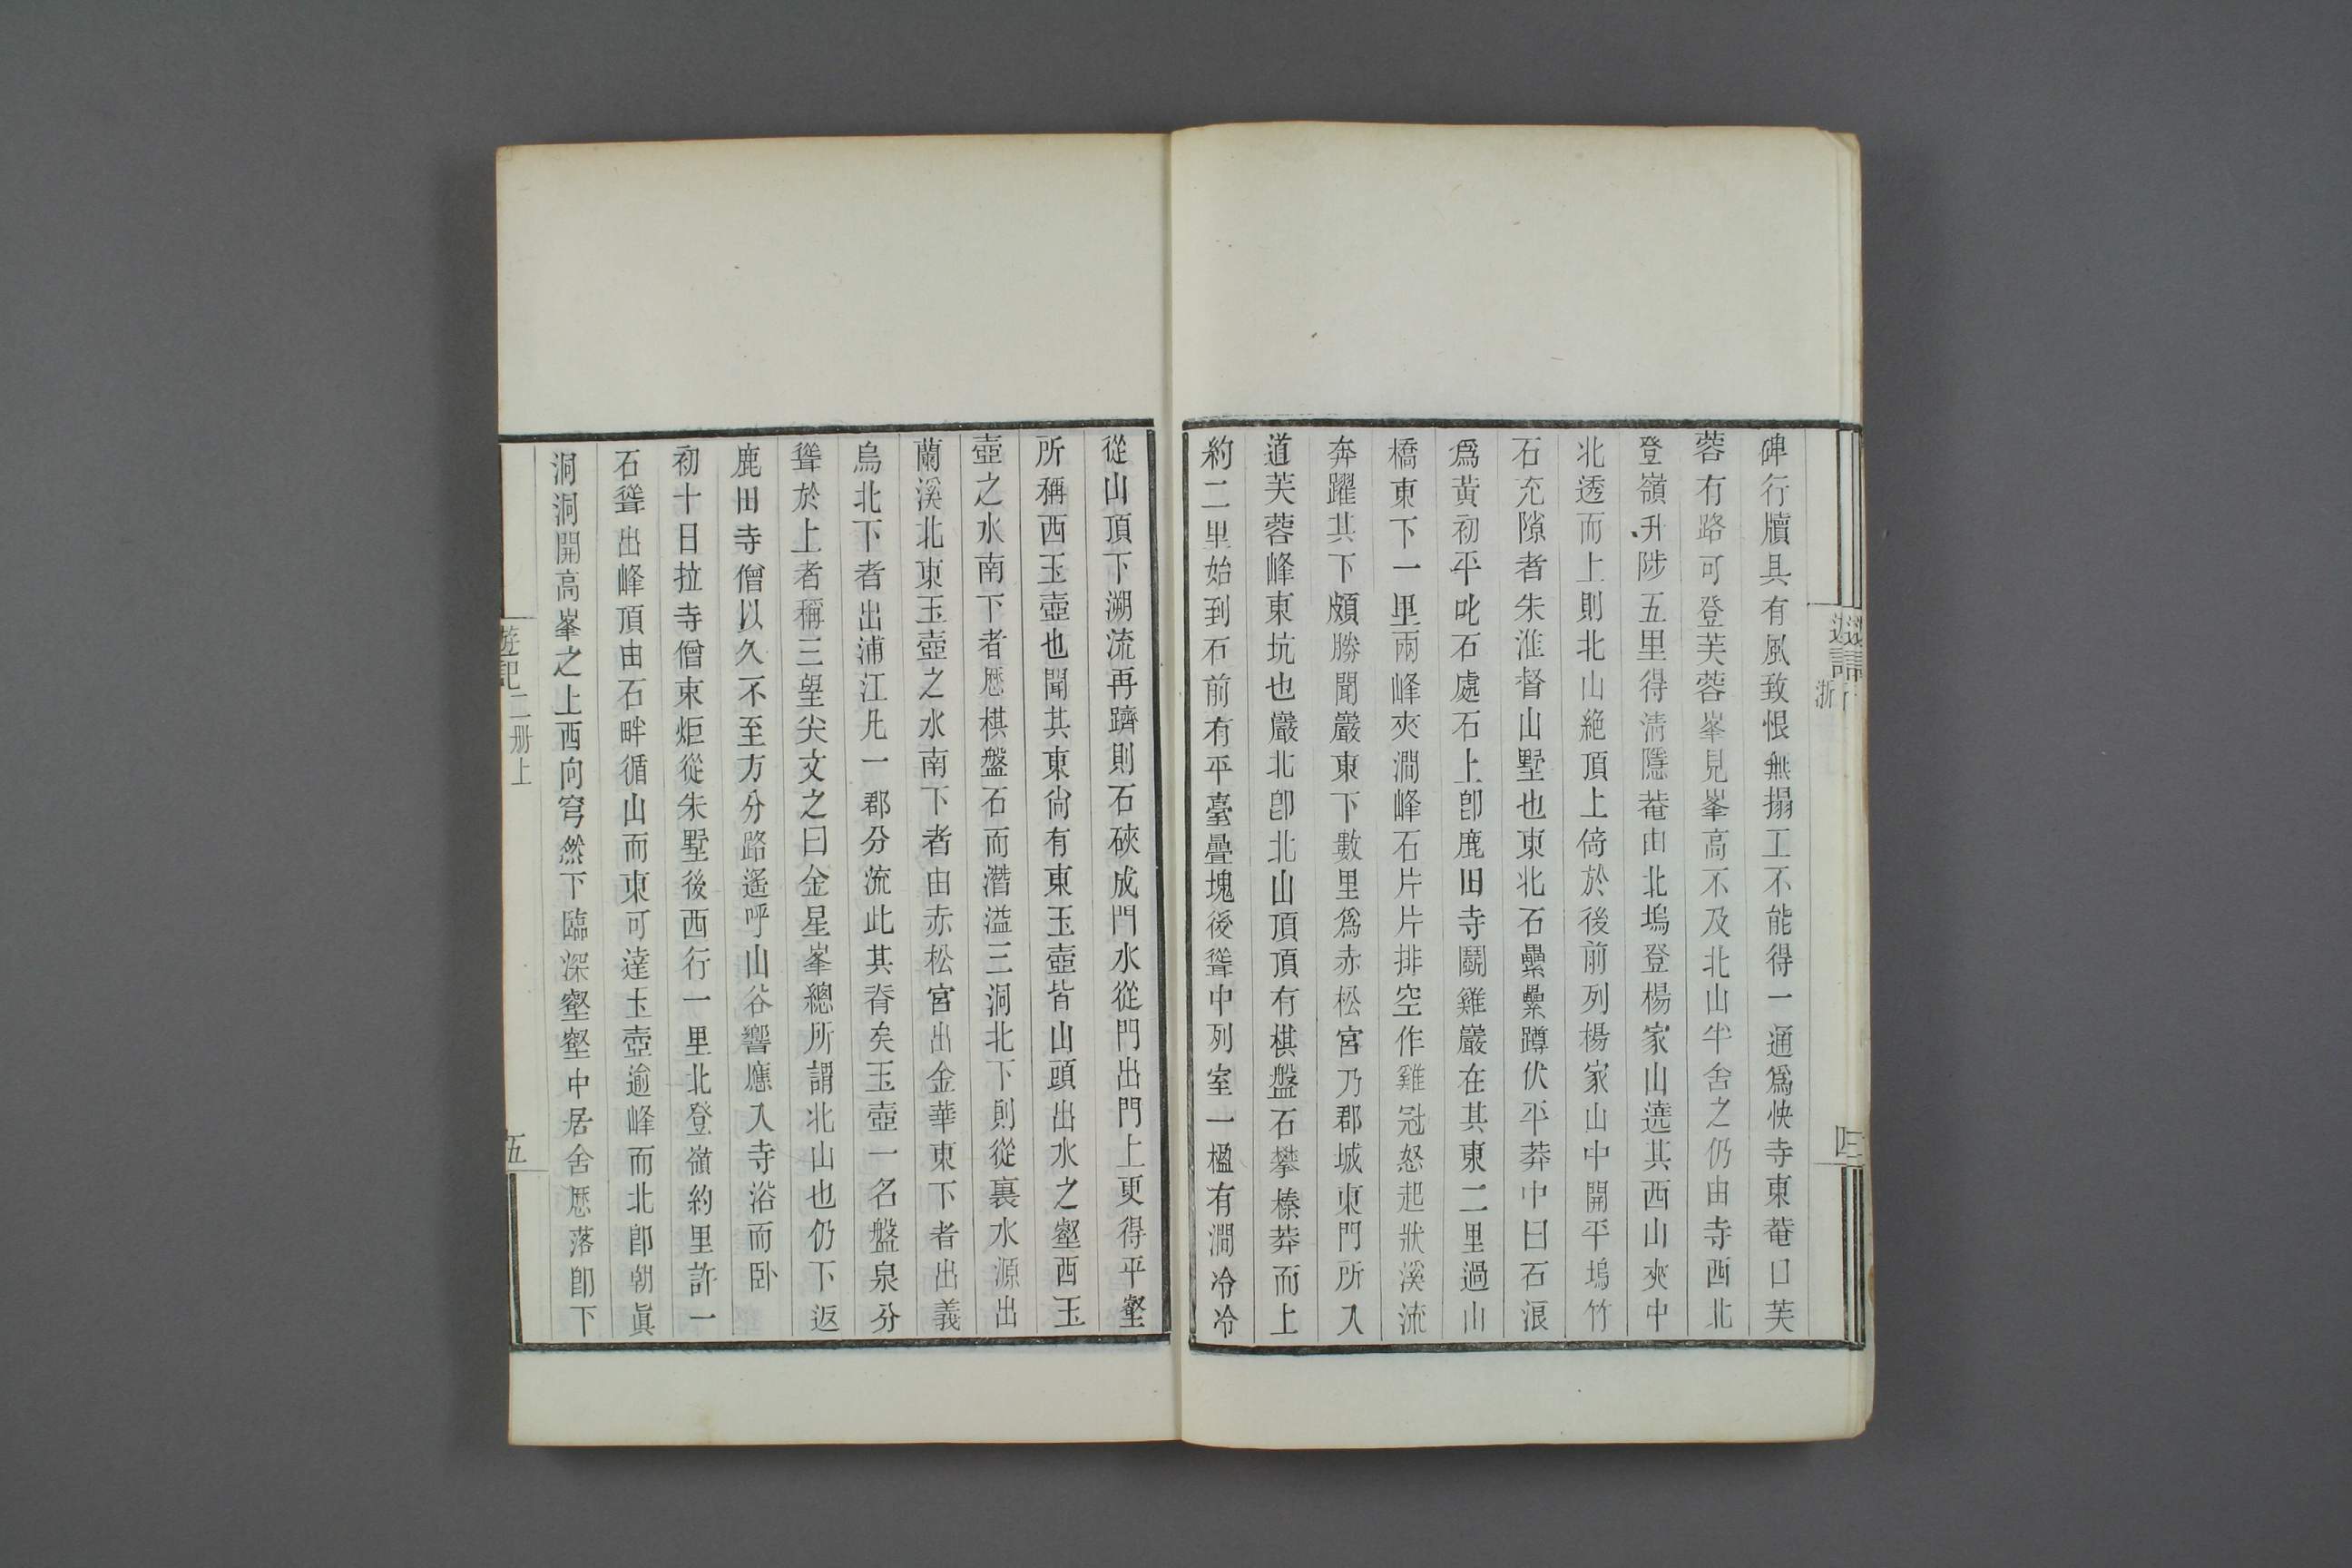 碑行牘具有風致恨無搨工不能得一通爲快寺東菴口芙
蓉有路可登芙蓉峯見峯高不及北山半舍之仍由寺西北
登嶺升陟五里得清隱菴由北塢登楊家山遶其西山夾中
北透而上則北山絶頂上倚於後前列楊家山中開平塢竹
石充隙者朱淮督山墅也東北石纍纍蹲伏平莽中曰石浪
爲黃初平叱石處石上卽鹿田寺鬬雞巖在其東二里過山
橋東下一里兩峰夾澗峰石片片排空作雞冠怒起狀溪流
奔躍其下頗勝聞巖東下數里爲赤松宮乃郡城東門所入
道芙蓉峰東坑也巖北卽北山頂頂有棋盤石攀榛莽而上
約二里始到石前有平臺疊塊後聳中列室一楹有澗冷冷
從山頂下溯流再躋則石硤成門水從門出門上更得平壑
所稱西玉壺也聞其東尙有東玉壺皆山頭出水之壑西玉
壺之水南下者歷棋盤石而潛溢三洞北下則從裏水源出
蘭溪北東玉壺之水南下者由赤松宮出金華東下者出義
烏北下者出浦江凡一郡分流此其脊矣玉壺一名盤泉分
聳於上者稱三望尖文之曰金星峯總所謂北山也仍下返
鹿田寺僧以久不至方分路遙呼山谷響應入寺浴而卧
初十日拉寺僧束炬從朱墅後西行一里北登嶺約里許一
石聳出峰頂由石畔循山而東可達玉壺逾峰而北卽朝眞
洞洞開高峯之上西向穹然下臨深壑壑中居舍歷落卽下
遊記二册上
五